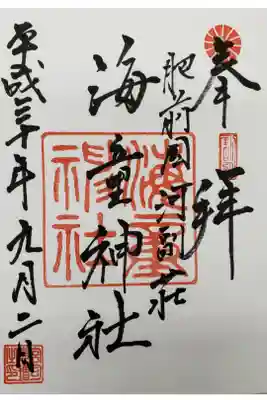 奉拝
肥前国河副荘
海童神社
平成三十年九月二日